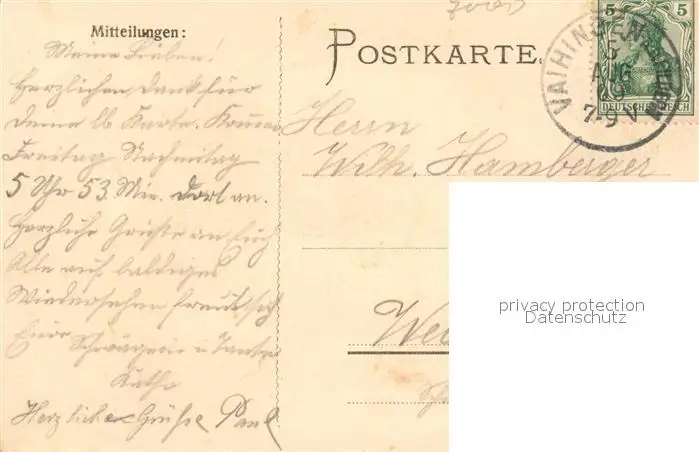 7000
Mitteilungen:
Meine Lieben!
Herzlichen Dank für
Deine lb Karte. Komme
Freitag Nachmitag
5 Uhr 53 Min. dort an.
Herzliche Grüsse an Euch
Alle auf baldiges
Wiedersehen freut sich
Eure
Schwägerin u Tante
Käthe
Herzliche Grüsse Paul
POSTKARTE.
5 5
DEUTSCHES REICH
VAIHINGEN
AUG
09
7-9 V
Herrn
Wilh. Hamberger
privacy protection
Datenschutz
We